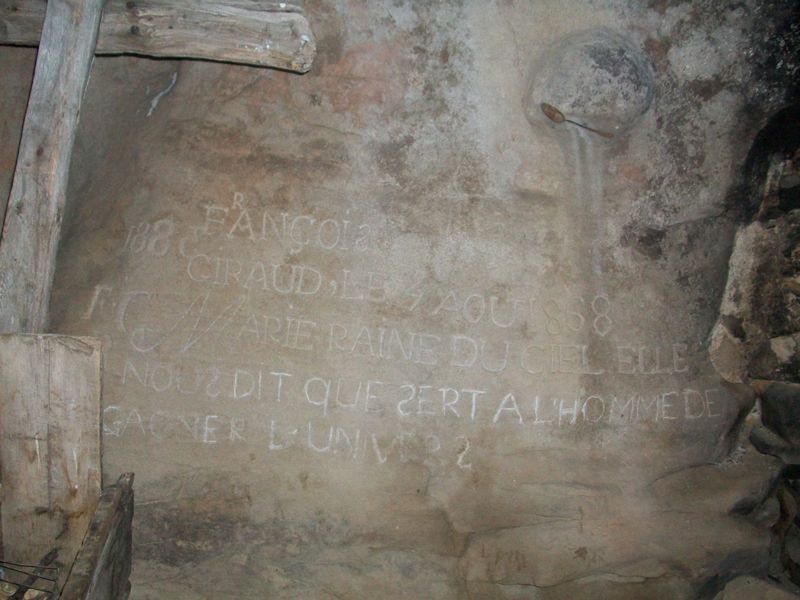 FRANÇOIS
GIRAUD, LE 4 AOUT 1868
MARIE RAINE DU CIEL ELLE
NOUS DIT QUE SERT A L'HOMME DE
GAGNER L'UNIVERS